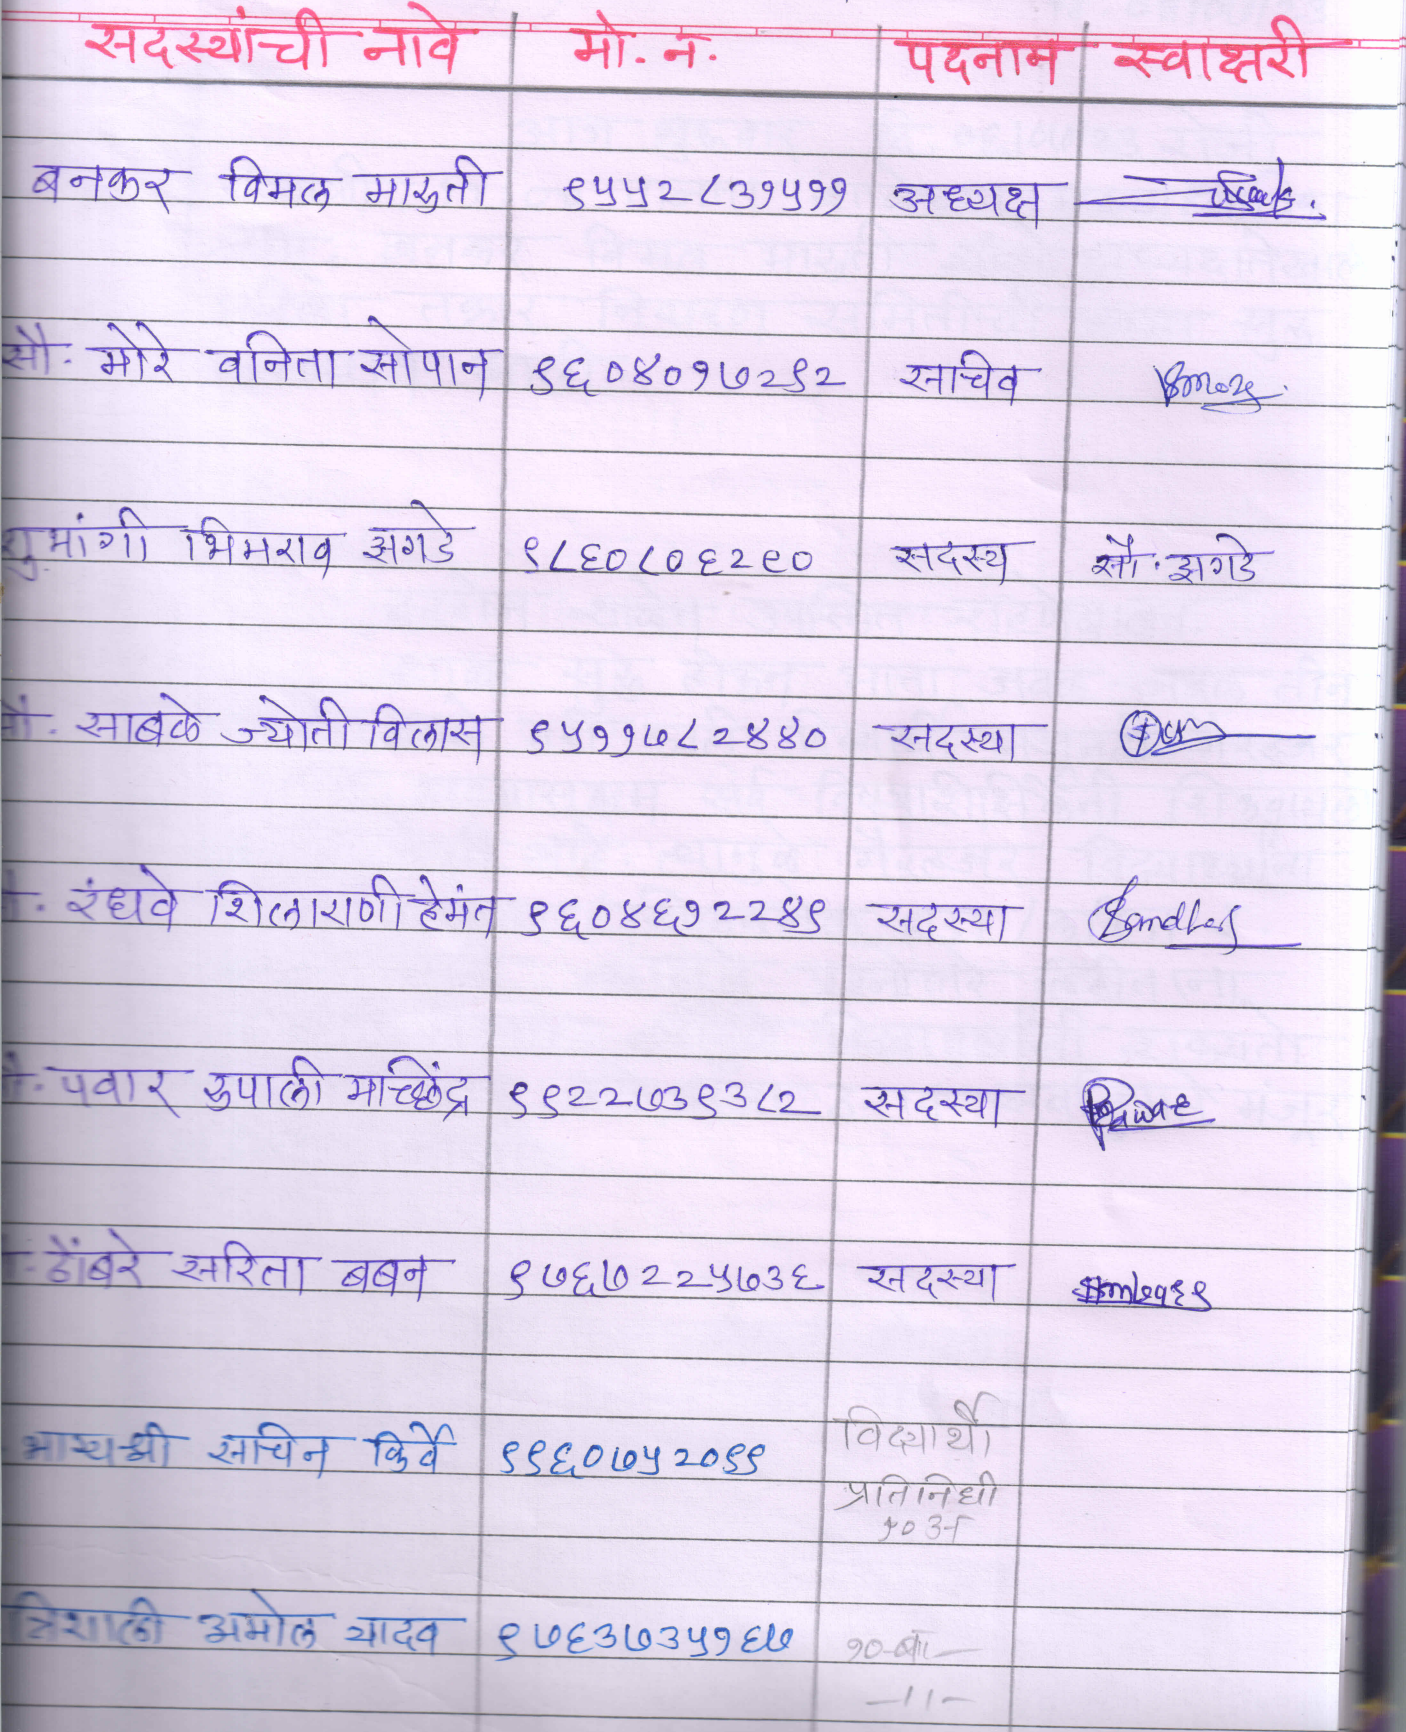 सदस्यांची नावे मो. न. पदनाम स्वाक्षरी
बनकर विमल मारुती ९५५२८३१५११ अध्यक्ष
सौ. मोरे वनिता सोपान ९६०४०१७२९२ साचिव
शुभांगी भिमराव झगडे ९८६०८०६२९० सदस्य सौ. झगडे
सौ. साबळे ज्योती विलास ९५११७८२४४० सदस्या
सौ. रंधवे शिलाराणी हेमंत ९६०४६१२२४९ सदस्या
सौ. पवार रुपाली मच्छिंद्र ९९२२७३९३८२ सदस्या Pawar
ठोंबरे सरिता बबन ९७६७२२५७३६ सदस्या
भाग्यश्री सचिन किर्वे ९९६०७५२०९९ विद्यार्थी
प्रतिनिधी
त्रिशाली अमोल यादव ९७६३७३५१६७
-11-